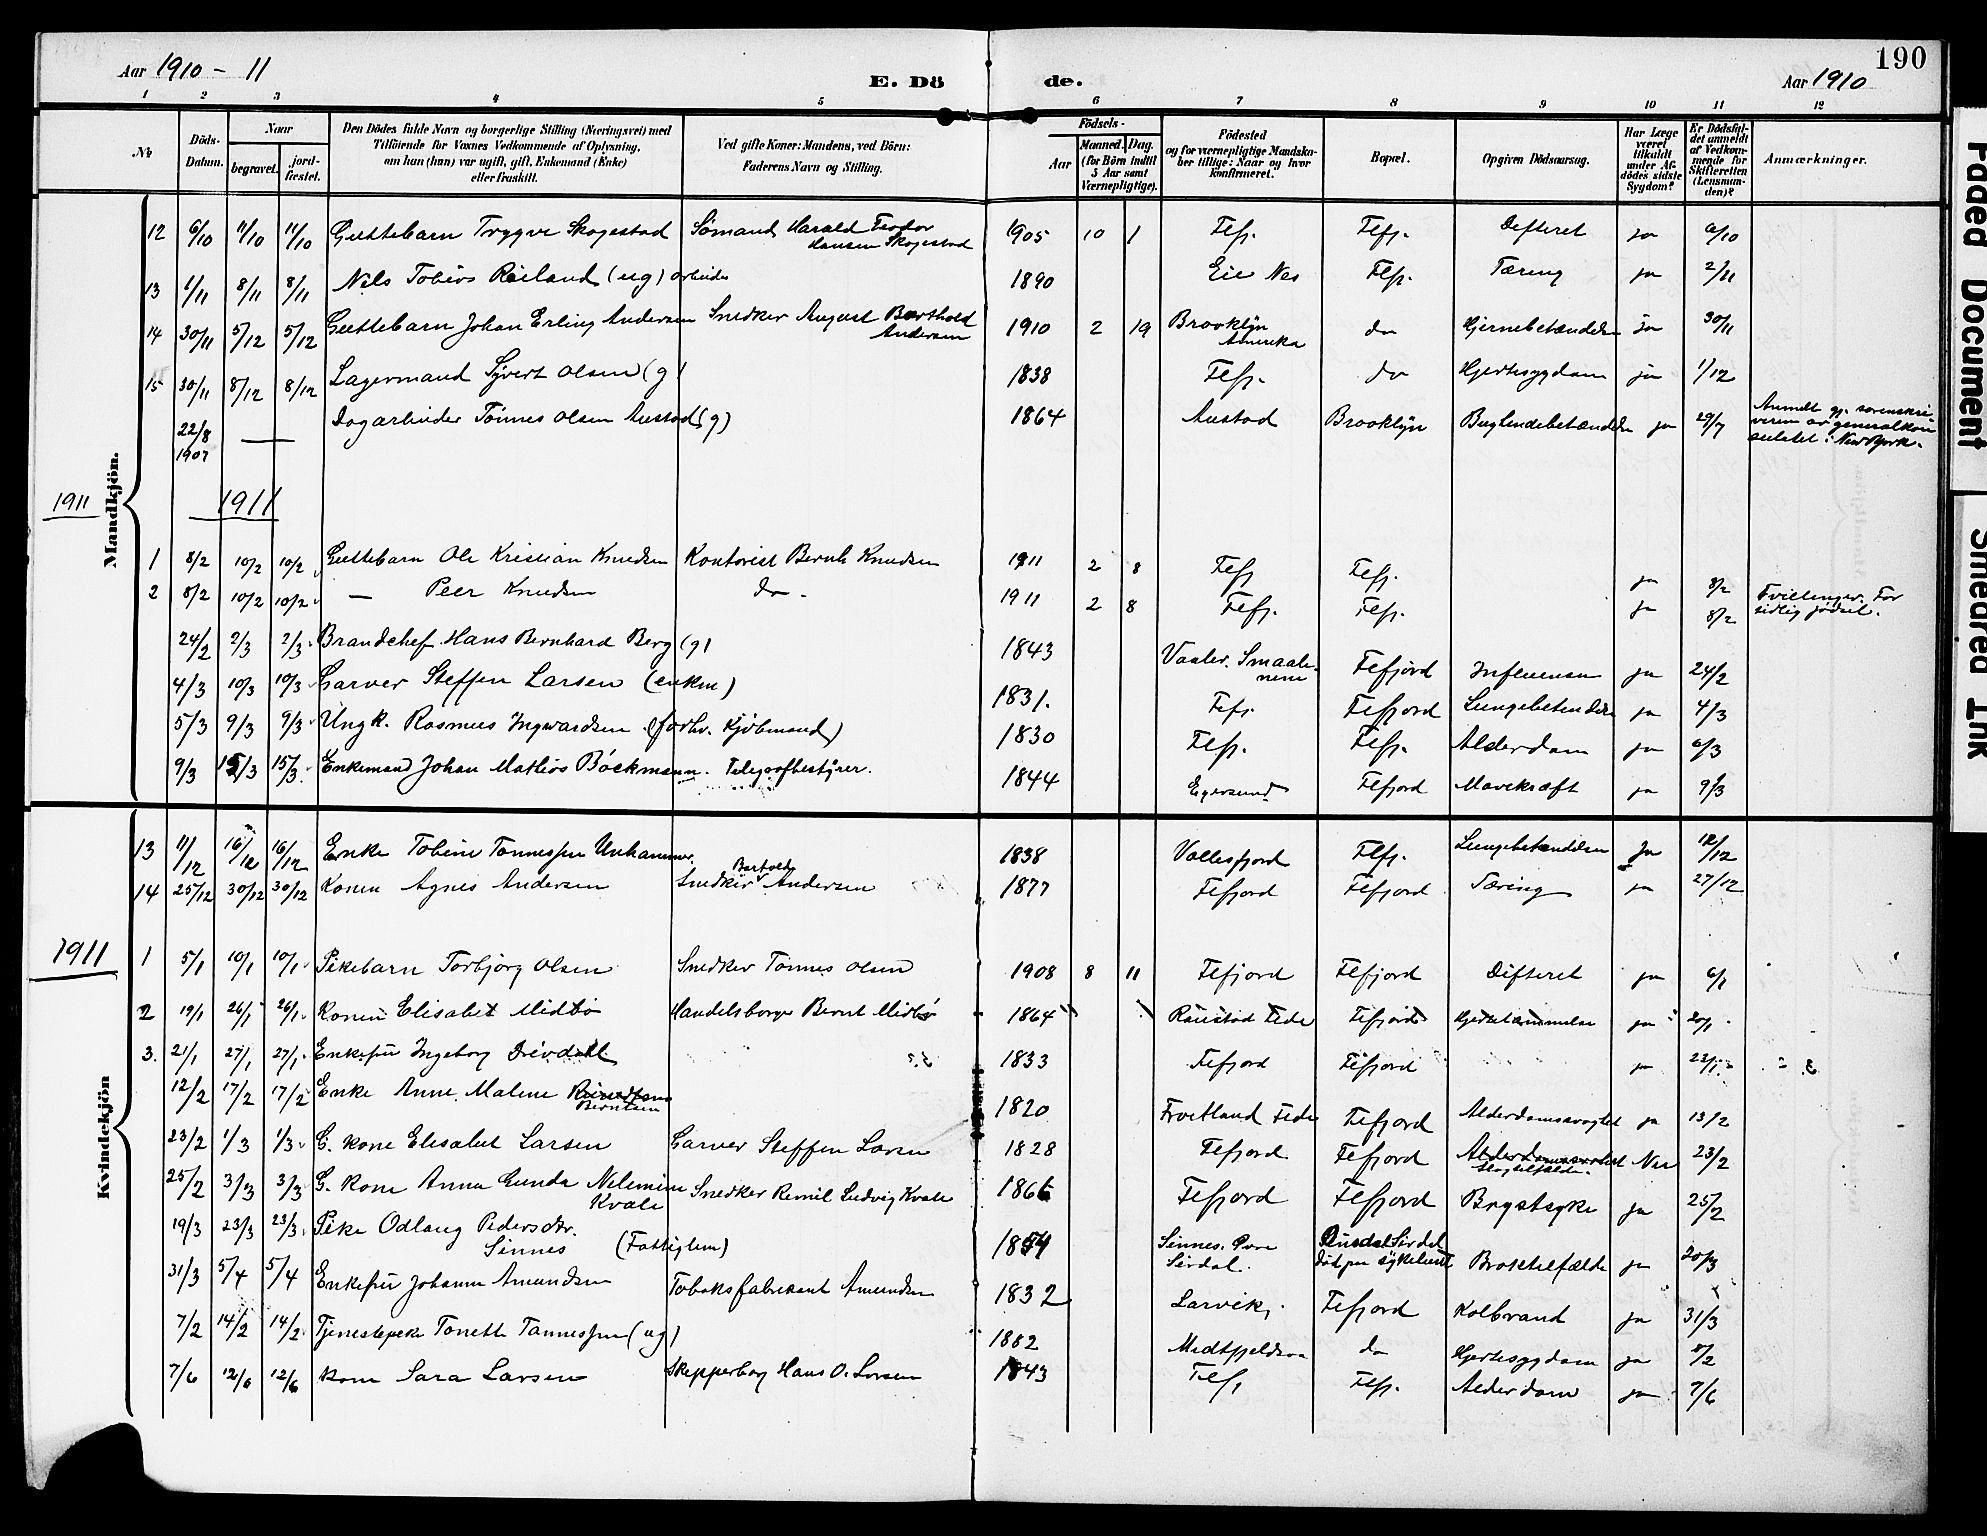 190
Aar 1910 - 11 E. Dö de. Aar 1910
1 2 3 4 5 6 7 8 9 10 11 12
№ Döds-Datum. Naar begravet. jordfæstet. Den Dödes fulde Navn og borgerlige Stilling (Næringsvei) med Tilföiende for Voxnes Vedkommende af Oplysning, om han (hun) var ugift, gift, Enkemand (Enke) eller fraskilt. Ved gifte Koner: Mandens, ved Börn: Faderens Navn og Stilling. Födsels- Aar Maaned. Dag. (for Börn indtil 5 Aar samt Værnepligtige). Födested og for værnepligtige Mandskaber tillige: Naar og hvor konfirmeret. Bopæl. Opgiven Dödsaarsag. Har Læge været tilkaldt under Afdödes sidste Sygdom? Er Dödsfaldet anmeldt af Vedkommende for Skifteretten (Lensmanden)? Anmærkninger.
Mandkjön.
12 6/10 11/10 11/10 Guttebarn Trygve Skogestad Sömand Harald Teodor Hansen Skogestad 1905 10 1 Flfj. Flfj. Difteret ja 6/10
13 1/11 8/11 8/11 Nils Tobias Röiland (ug) arbeider 1890 Eie Nes Flfj. Tæring ja 2/11
14 30/11 5/12 5/12 Guttebarn Johan Erling Andersen Snedker August Barthold Andersen 1910 2 19 Brooklyn Amerika do Hjernebetændelse ja 30/11
15 30/11 8/12 8/12 Lagermand Syvert Olsen (g) 1838 Flfj. do Hjertesygdom ja 1/12
22/8 1907 — Dagarbeider Tönnes Olsen Austad (g) 1864 Austad Brooklyn Buglendebetændelse ja 29/7 Anmeldt gj. sorenskriveren av generalkonsulatet i New York.
1911 1911
1 8/2 10/2 10/2 Guttebarn Ole Kristian Knudsen Kontorist Bernh Knudsen 1911 2 8 Flfj Flfj. ja 8/2
2 8/2 10/2 10/2 — Peer Knudsen do - 1911 2 8 Flfj. Flfj. ja 8/2 Tvillinger. For tidlig födsel.
24/2 2/3 2/3 Brandchef Hans Bernhard Berg (g) 1843 Vaaler. Smaalenene Flfjord Influensa ja 24/2
4/3 10/3 10/3 Garver Steffen Larsen (enkm) 1831. Flfj. Flfjord Lungebetændelse ja 4/3
5/3 9/3 9/3 Ungk. Rasmus Ingwardsen (forhv. Kjöbmand) 1830 Flfj. Flfj. Alderdom ja 6/3
9/3 15/3 15/3 Enkemand Johan Mathias Böckmann. Telegrafbestyrer. 1844 Egersund Flfjord Mavekræft ja 9/3
Kvindekjön
13 11/12 16/12 16/12 Enke Tobine Tønnessen Unhammer. 1838 Vollesfjord Flfj. Lungebetændelse Ja 12/12
14 25/12 30/12 30/12 Konen Agnes Andersen Snedker Barthold Andersen 1877 Flfjord Flfjord Tæring ja 27/12
1911
1 5/1 10/1 10/1 Pikebarn Torbjörg Olsen Snedker Tönnes Olsen 1908 8 11 Flfjord Flfjord Difteret ja 6/1
2 19/1 26/1 26/1 Konen Elisabet Midbö Handelsborger Bernt Midbö 1864 Röustad Fede Flfjord ja 20/1
3. 21/1 27/1 27/1 Enkefru Ingeborg Drivdal 1833 Flfjord Flfjord ja 23/1
12/2 17/2 17/2 Enke Anne Malene Berntsen 1820 Frøitland Fede Flfjord Alderdomssvaghet ja 13/2
23/2 1/3 1/3 G. kone Elisabet Larsen Garver Steffen Larsen 1828 Flfjord Flfjord Alderdomssvaghet Slagtilfælde. Nei 23/2
25/2 3/3 3/3 G. kone Anna Gunda Nilemine Kvale Snedker Remil Ludvig Kvale 1866 Flfjord Flfjord Brystsyke ja 25/2
19/3 23/3 23/3 Pike Odlaug Pedersdtr. Sinnes (Fattiglem) 1854 Sinnes. Øvre Sirdal. Sirdal död paa sykehuset Broktilfælde ja 20/3
31/3 5/4 5/4 Enkefru Johanne Amundsen Tobaksfabrikant Amundsen 1832 Larvik. Flfjord Kolbrand ja 31/3
7/2 14/2 14/2 Tjenestepike Tonette Tønnessen (ug) 1882 do Hjertesygdom ja 8/2
7/6 12/6 12/6 kone Sara Larsen Skipperborg Hans O. Larsen 1843 Flfj Flfj. Alderdom ja 7/6
Faded Document
Smeared Ink